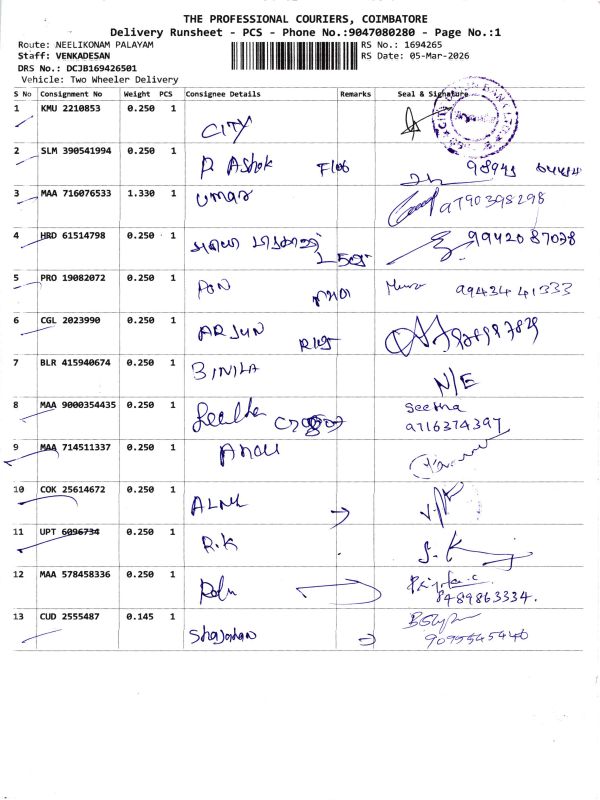 THE PROFESSIONAL COURIERS, COIMBATORE
Delivery Runsheet - PCS - Phone No.:9047080280 - Page No.:1
Route: NEELIKONAM PALAYAM RS No.: 1694265
Staff: VENKADESAN RS Date: 05-Mar-2026
DRS No.: DCJB169426501
Vehicle: Two Wheeler Delivery
S No Consignment No Weight PCS Consignee Details Remarks Seal & Signature
1 KMU 2210853 0.250 1 CITY
2 SLM 390541994 0.250 1 P. Ashok
3 MAA 716076533 1.330 1 Umar 9790398298
4 HRD 61514798 0.250 1 9942087038
5 PRO 19082072 0.250 1 PON 9943441333
6 CGL 2023990 0.250 1 ARJUN
7 BLR 415940674 0.250 1 BINILA N/E
8 MAA 9000354435 0.250 1 Seetha
9716374397
9 MAA 714511337 0.250 1
10 COK 25614672 0.250 1
11 UPT 6096734 0.250 1 R.K S.K
12 MAA 578458336 0.250 1
8489863334.
13 CUD 2555487 0.145 1 Shajahan
9095545440